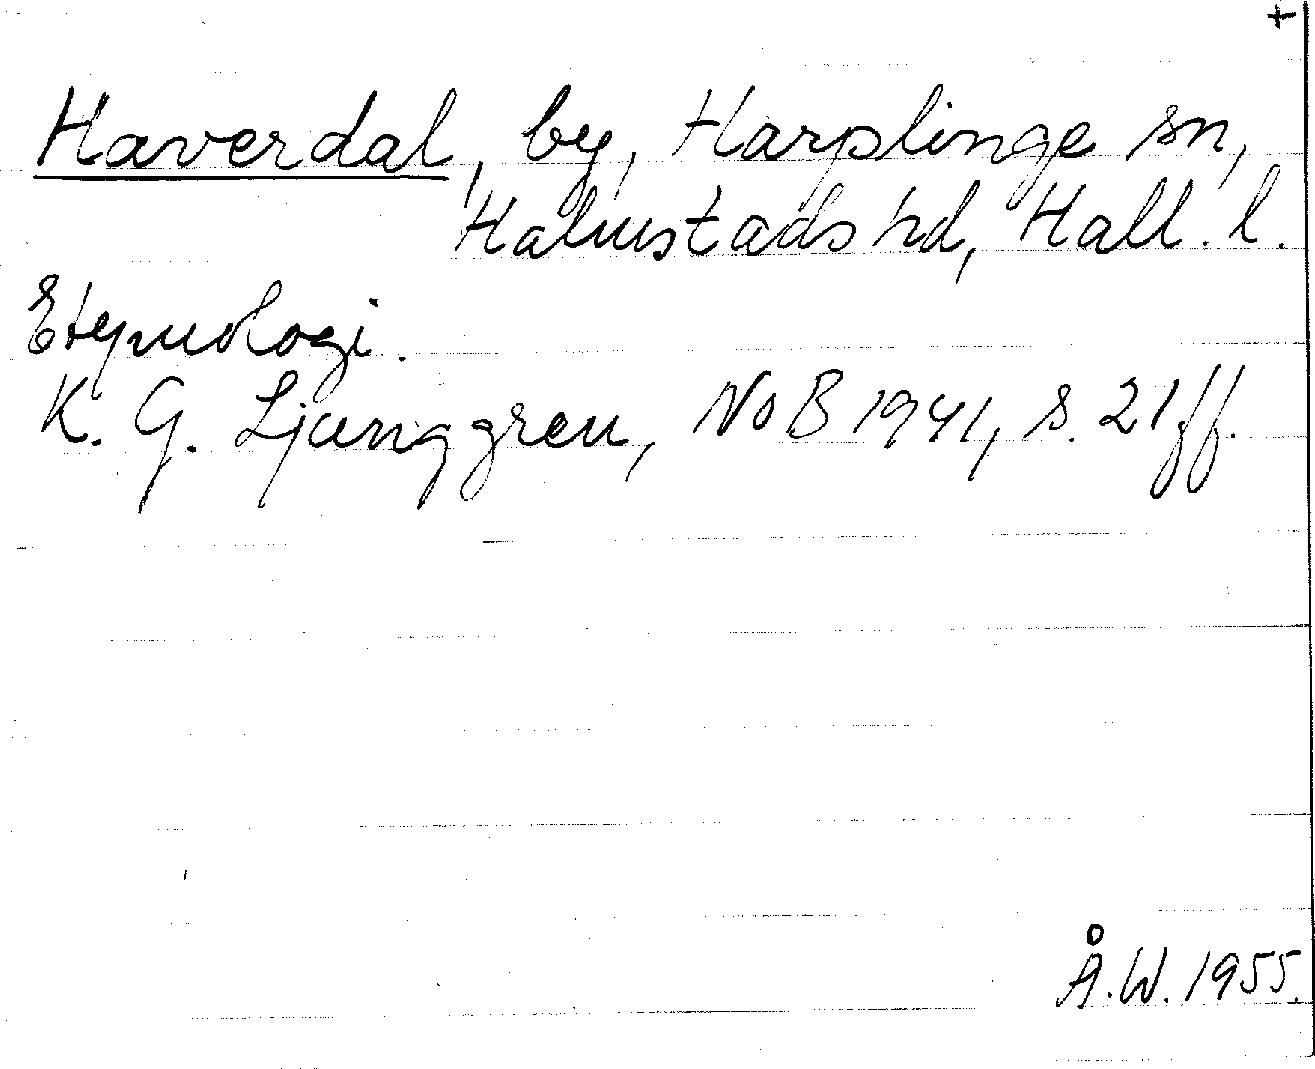 +
Haverdal, by, Harplinge sn,
Halmstads hd, Hall. l.
Etymologi.
K. G. Ljunggren, NoB 1941, s. 21 ff.
Å.W. 1955.